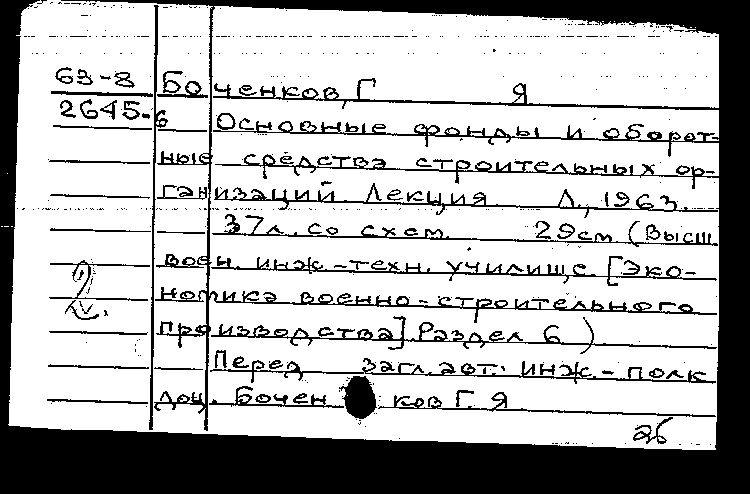 63-8 Боченков, Г Я
2645-6 Основные фонды и оборот-
ные средства строительных ор-
ганизаций. Лекция Л., 1963.
37л. со схем. 29см (Высш.
воен. инж.-техн. училище. [Эко-
номика военно-строительного
производства]. Раздел 6)
2.
Перед загл. авт.: инж.-полк
доц. Бочен ков Г. Я
2б